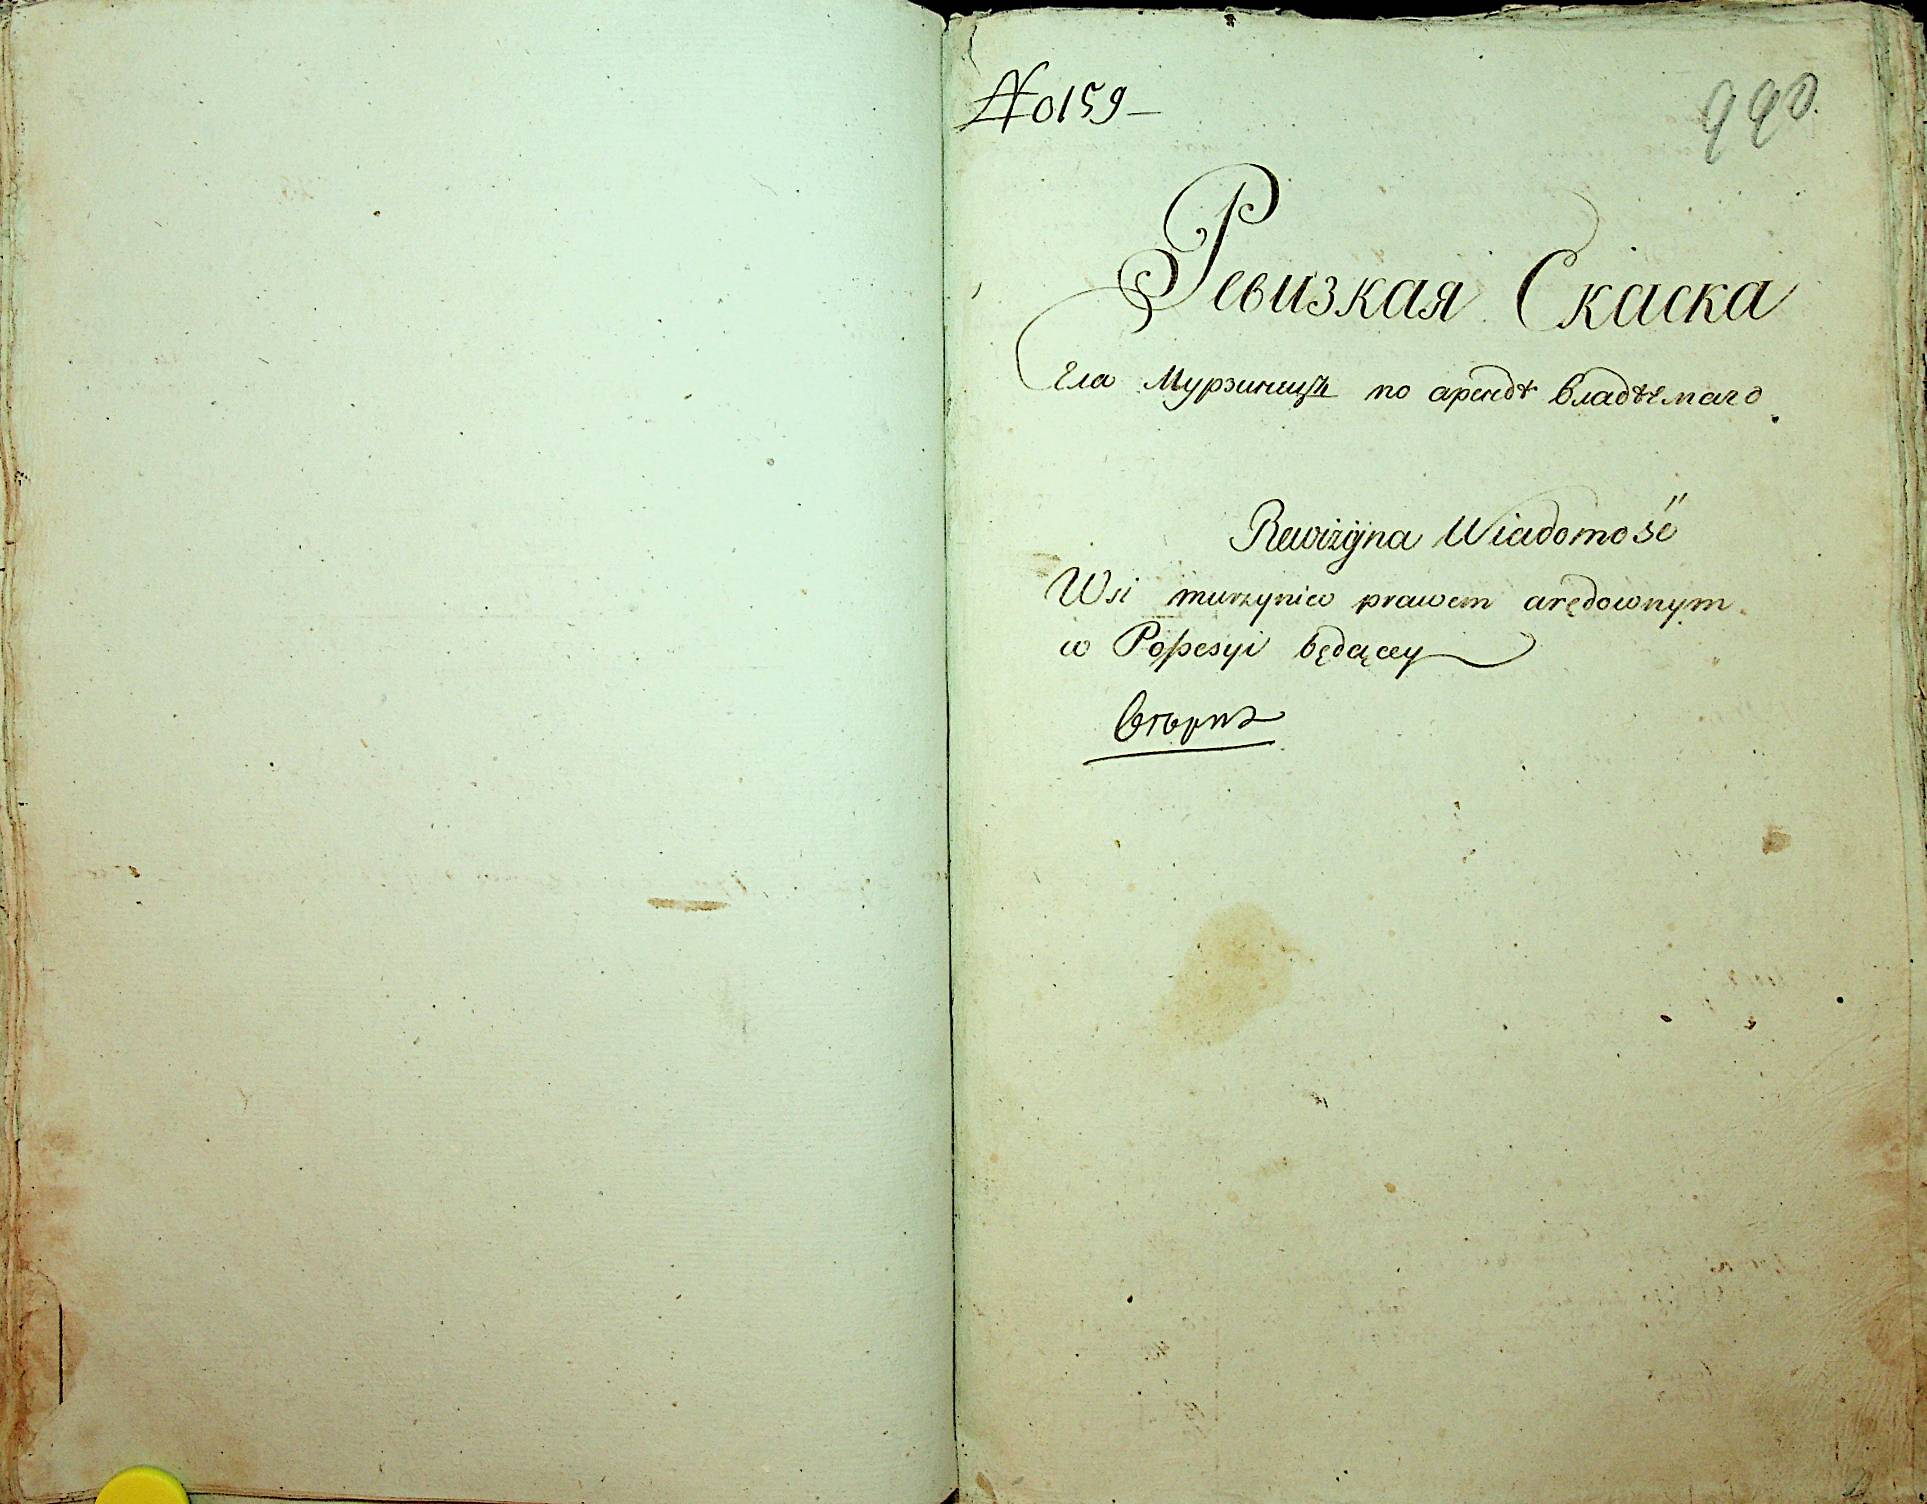 № 0159
990.
Ревизкая Скаска
Села Мурзинецъ по арендѣ владѣемаго
Rewizÿna Wiadomość
Wsi murzyniec prawem arędownym
w Poſsesyi będącey